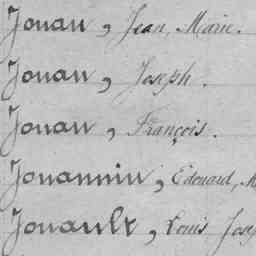 Jouan, Jean, Marie.
Jouan, Joseph.
Jouan, François.
Jouannin, Edouard, M
Jouault, Louis Josep